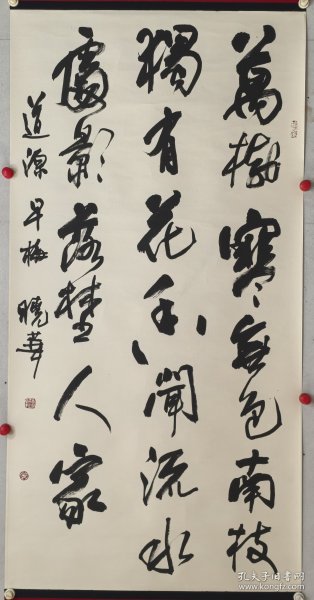 萬樹寒無色南枝
獨有花香聞流水
處影落野人家
道源早梅 曉華
孔夫子旧书网
www.kongfz.com